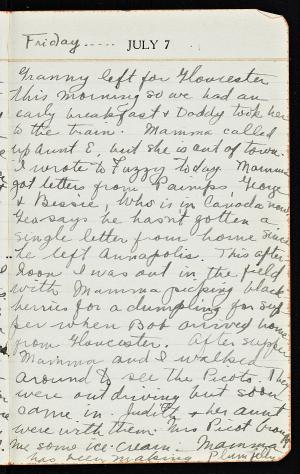 Friday..... JULY 7
Granny left for Gloucester
this morning so we had an
early breakfast & Daddy took her
to the train. Mamma called
up Aunt E, but she is out of town.
I wrote to Fuzzy today. Mamma
got letters from Pamps, George
& Bessie, who is in Canada now
Geo says he hasn't gotten a
single letter from home since
he left Annapolis. This after
noon I was out in the field
with Mamma picking black
berries for a dumpling for sup
per when Bob arrived home
from Gloucester. After supper
Mamma and I walked
around to see the Picots. They
were out driving but soon
came in. Judith & her aunt
were with them. Mrs Picot brought
me some ice-cream. Mamma
has been making